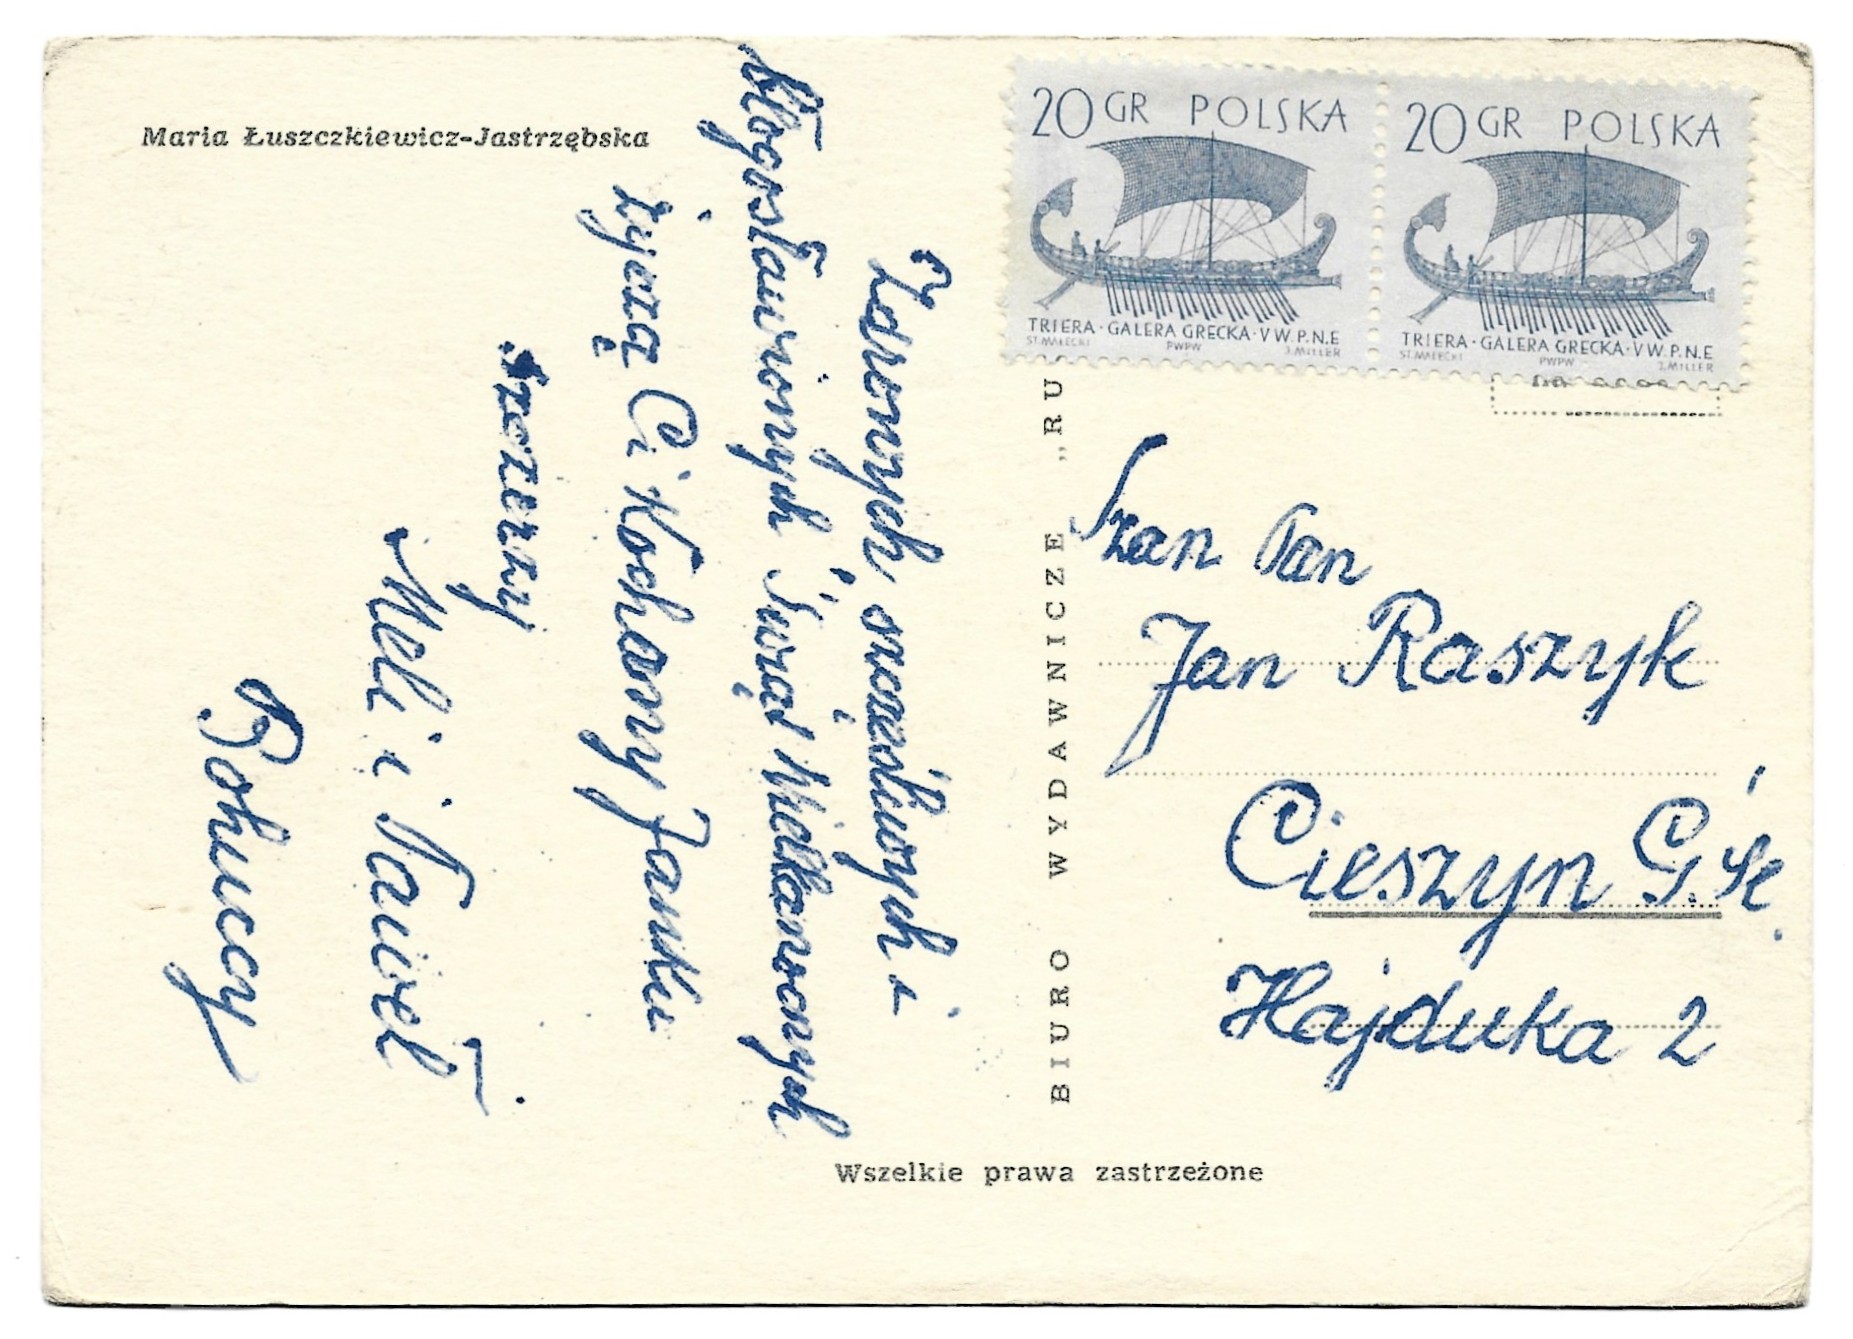 Maria Łuszczkiewicz-Jastrzębska
Zdrowych szczęśliwych i
błogosławionych Świąt Wielkanocnych
życzą Ci Kochany Janku
szczerzy
Meli i Paweł
Bohuccy
20 GR POLSKA
TRIERA · GALERA GRECKA · V W. P.N.E
ST. MAŁECKI PWPW J. MILLER
20 GR POLSKA
TRIERA · GALERA GRECKA · V W. P.N.E
ST. MAŁECKI PWPW J. MILLER
BIURO WYDAWNICZE „RU
Szan Pan
Jan Raszyk
Cieszyn G. Śl.
Hajduka 2
Wszelkie prawa zastrzeżone